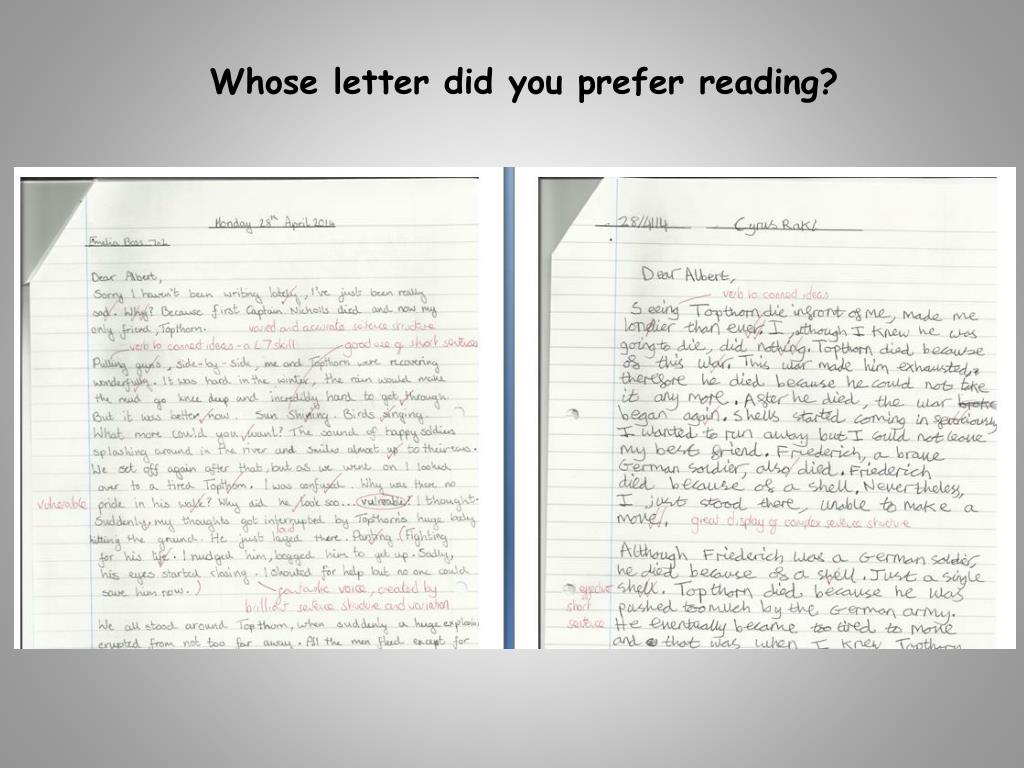 Whose letter did you prefer reading?
Monday 28th April 2014
Dear Albert,
Sorry I haven't been writing lately, I've just been really
sad. Why? Because first Captain Nicholls died and now my
only friend, Topthorn.
varied and accurate sentence structure
verb to connect ideas - a L7 skill
good use of short sentences
Pulling guns, side-by-side, me and Topthorn were recovering
wonderfully. It was hard in the winter, the rain would make
the mud go knee deep and incredibly hard to get through.
But it was better now. Sun Shining. Birds singing.
What more could you want? The sound of happy soldiers
splashing around in the river and smiles almost up to their ears.
We set off again after that, but as we went on I looked
over to a tired Topthorn. I was confused. Why was there no
vulnerable
pride in his walk? Why did he look soo... I thought.
Suddenly, my thoughts got interrupted by Topthorn's huge body
hitting the ground. He just layed there. Panting (Fighting
laid
for his life.) I nudged him, begged him to get up. Sadly,
his eyes started closing. I shouted for help but no one could
save him now.)
fantastic voice, created by
brilliant sentence structure and variation
We all stood around Topthorn, when suddenly a huge explosion
erupted from not too far away. All the men fled except for
28/4/14 Cyrus
Dear Albert,
verb to connect ideas
Seeing Topthorn die infront of me, made me
lonelier than ever. I, although I knew he was
going to die, did nothing. Topthorn died because
of this war. This war made him exhausted,
therefore he died because he could not take
it any more. After he died, the war
began again. Shells started coming in
I wanted to run away but I could not leave
my best friend. Friederich, a brave
German soldier, also died. Friederich
died because of a shell. Nevertheless,
I just stood there, unable to make a
move.
great display of complex sentence structure
Although Friederich was a German soldier,
he died because of a shell. Just a single
effective
shell. Topthorn died because he was
short
pushed too much by the German army.
sentence
He eventually became too tired to move
and that was when I knew Topthorn